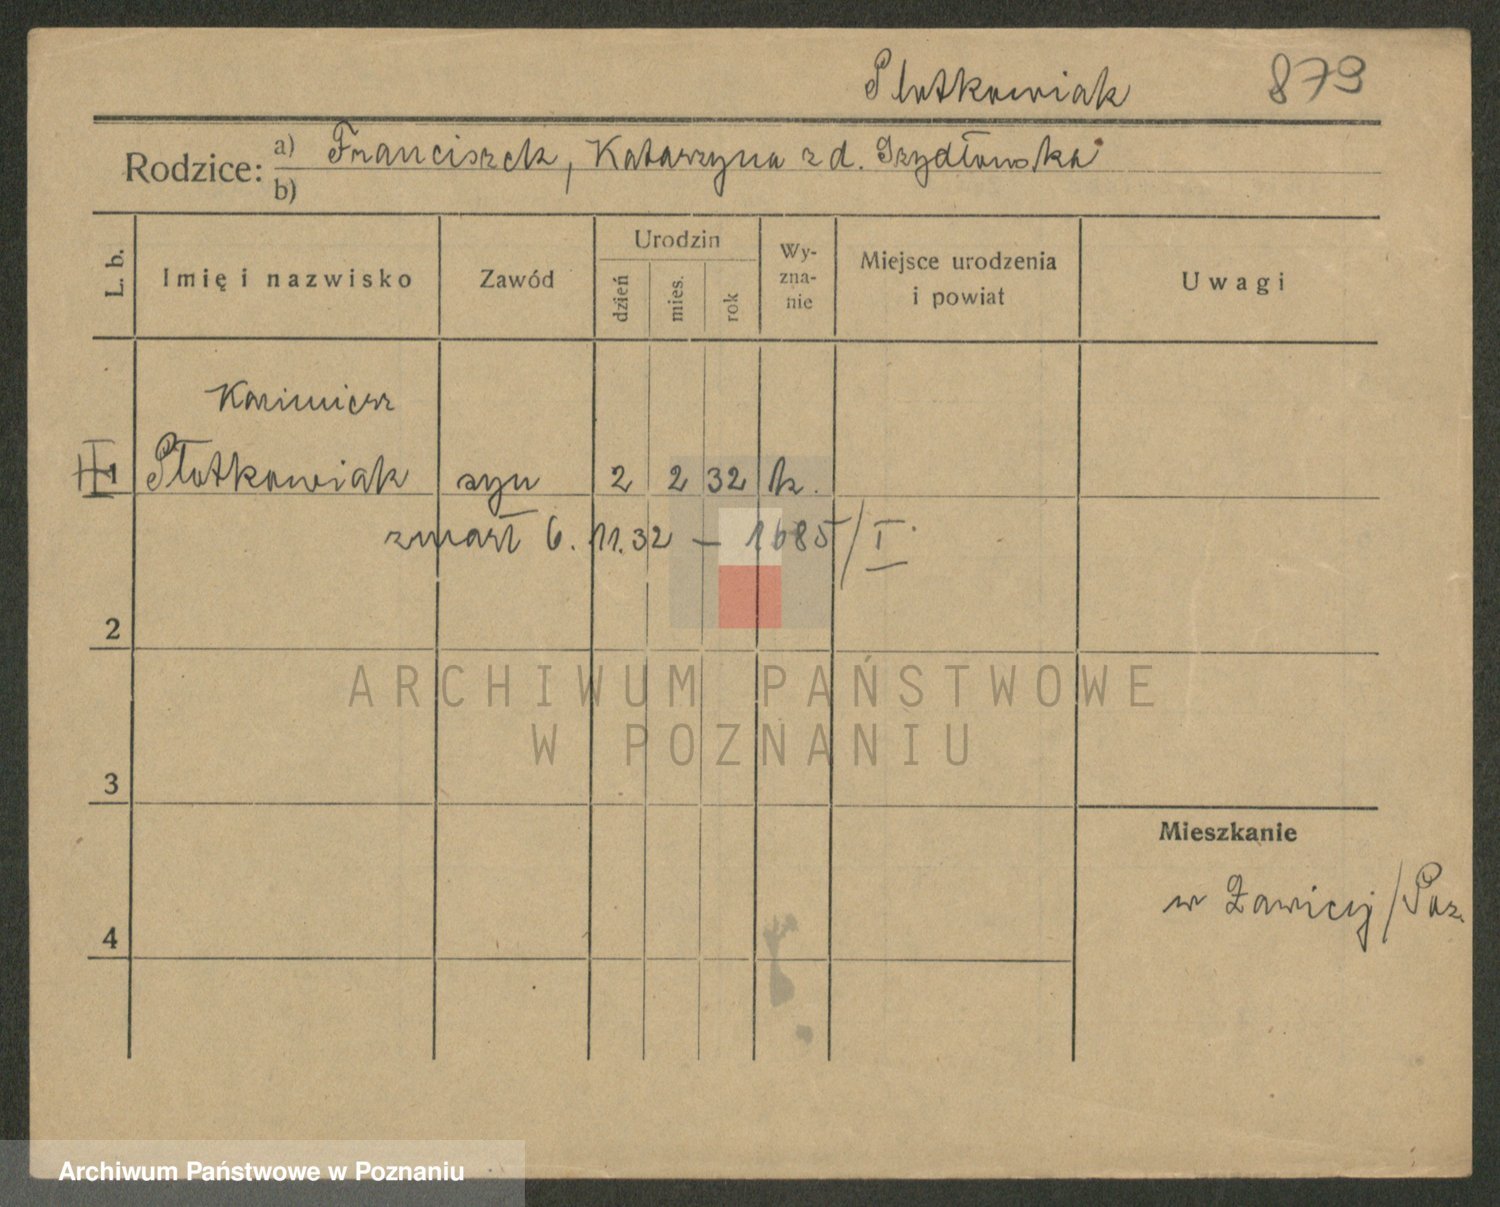 Plotkowiak 879
Rodzice: a) Franciszek, Katarzyna z d. Szydłowska
b)
L. b. Imię i nazwisko Zawód Urodzin dzień mies. rok Wyzna-nie Miejsce urodzenia i powiat Uwagi
Kazimierz
1 Płotkowiak syn 2 2 32 k.
zmarł 6. 11. 32 — 1685/I.
2
ARCHIWUM PAŃSTWOWE
W POZNANIU
3
Mieszkanie
w Żawicy/Poz.
4
Archiwum Państwowe w Poznaniu